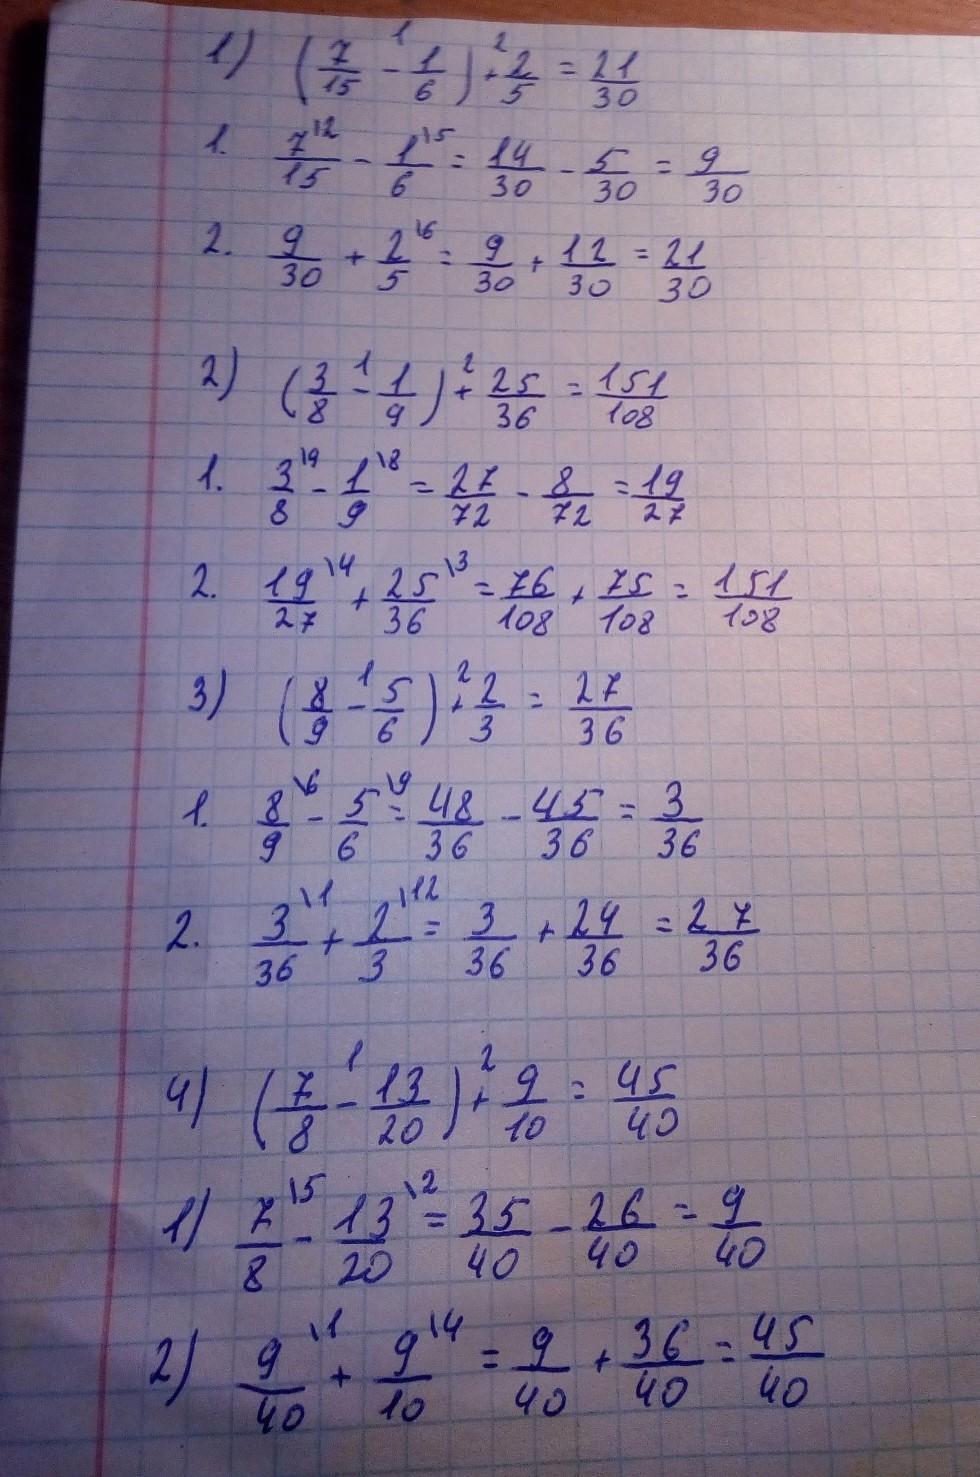 1) (7/15 -¹ 1/6) +² 2/5 = 21/30
1. 7\2/15 - 1\5/6 = 14/30 - 5/30 = 9/30
2. 9/30 + 2\6/5 = 9/30 + 12/30 = 21/30
2) (3/8 -¹ 1/9) +² 25/36 = 151/108
1. 3\9/8 - 1\8/9 = 27/72 - 8/72 = 19/27
2. 19\4/27 + 25\3/36 = 76/108 + 75/108 = 151/108
3) (8/9 -¹ 5/6) +² 2/3 = 27/36
1. 8\6/9 - 5\9/6 = 48/36 - 45/36 = 3/36
2. 3\1/36 + 2\12/3 = 3/36 + 24/36 = 27/36
4) (7/8 -¹ 13/20) +² 9/10 = 45/40
1) 7\5/8 - 13\2/20 = 35/40 - 26/40 = 9/40
2) 9\1/40 + 9\4/10 = 9/40 + 36/40 = 45/40